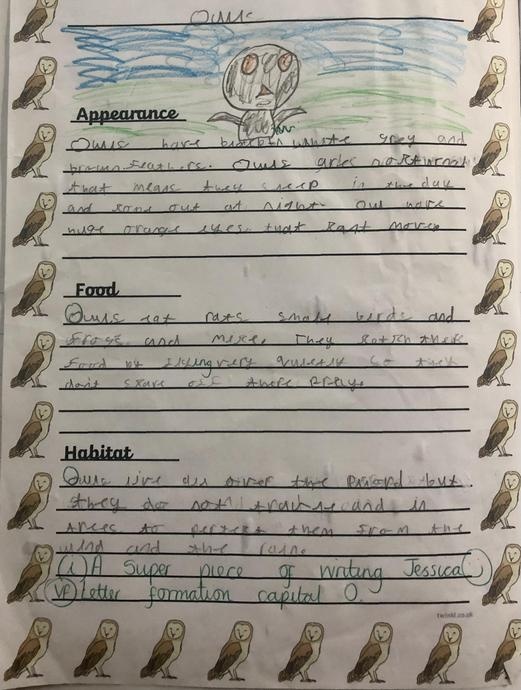 Owls
Appearance
Owls have white grey and
brown feathers. Owls
that means they sleep in the day
and come out at night. Owl have
huge orange eyes. that cant move.
Food
Owls eat rats small birds and
frogs and mice. They
food by flying very quietly so they
don't scare off there prey.
Habitat
Owls live all over the but.
they do not and in
trees to them from the
wind and the rain.
(i) A Super piece of writing Jessica
VF Letter formation capital O.
twinkl.co.uk